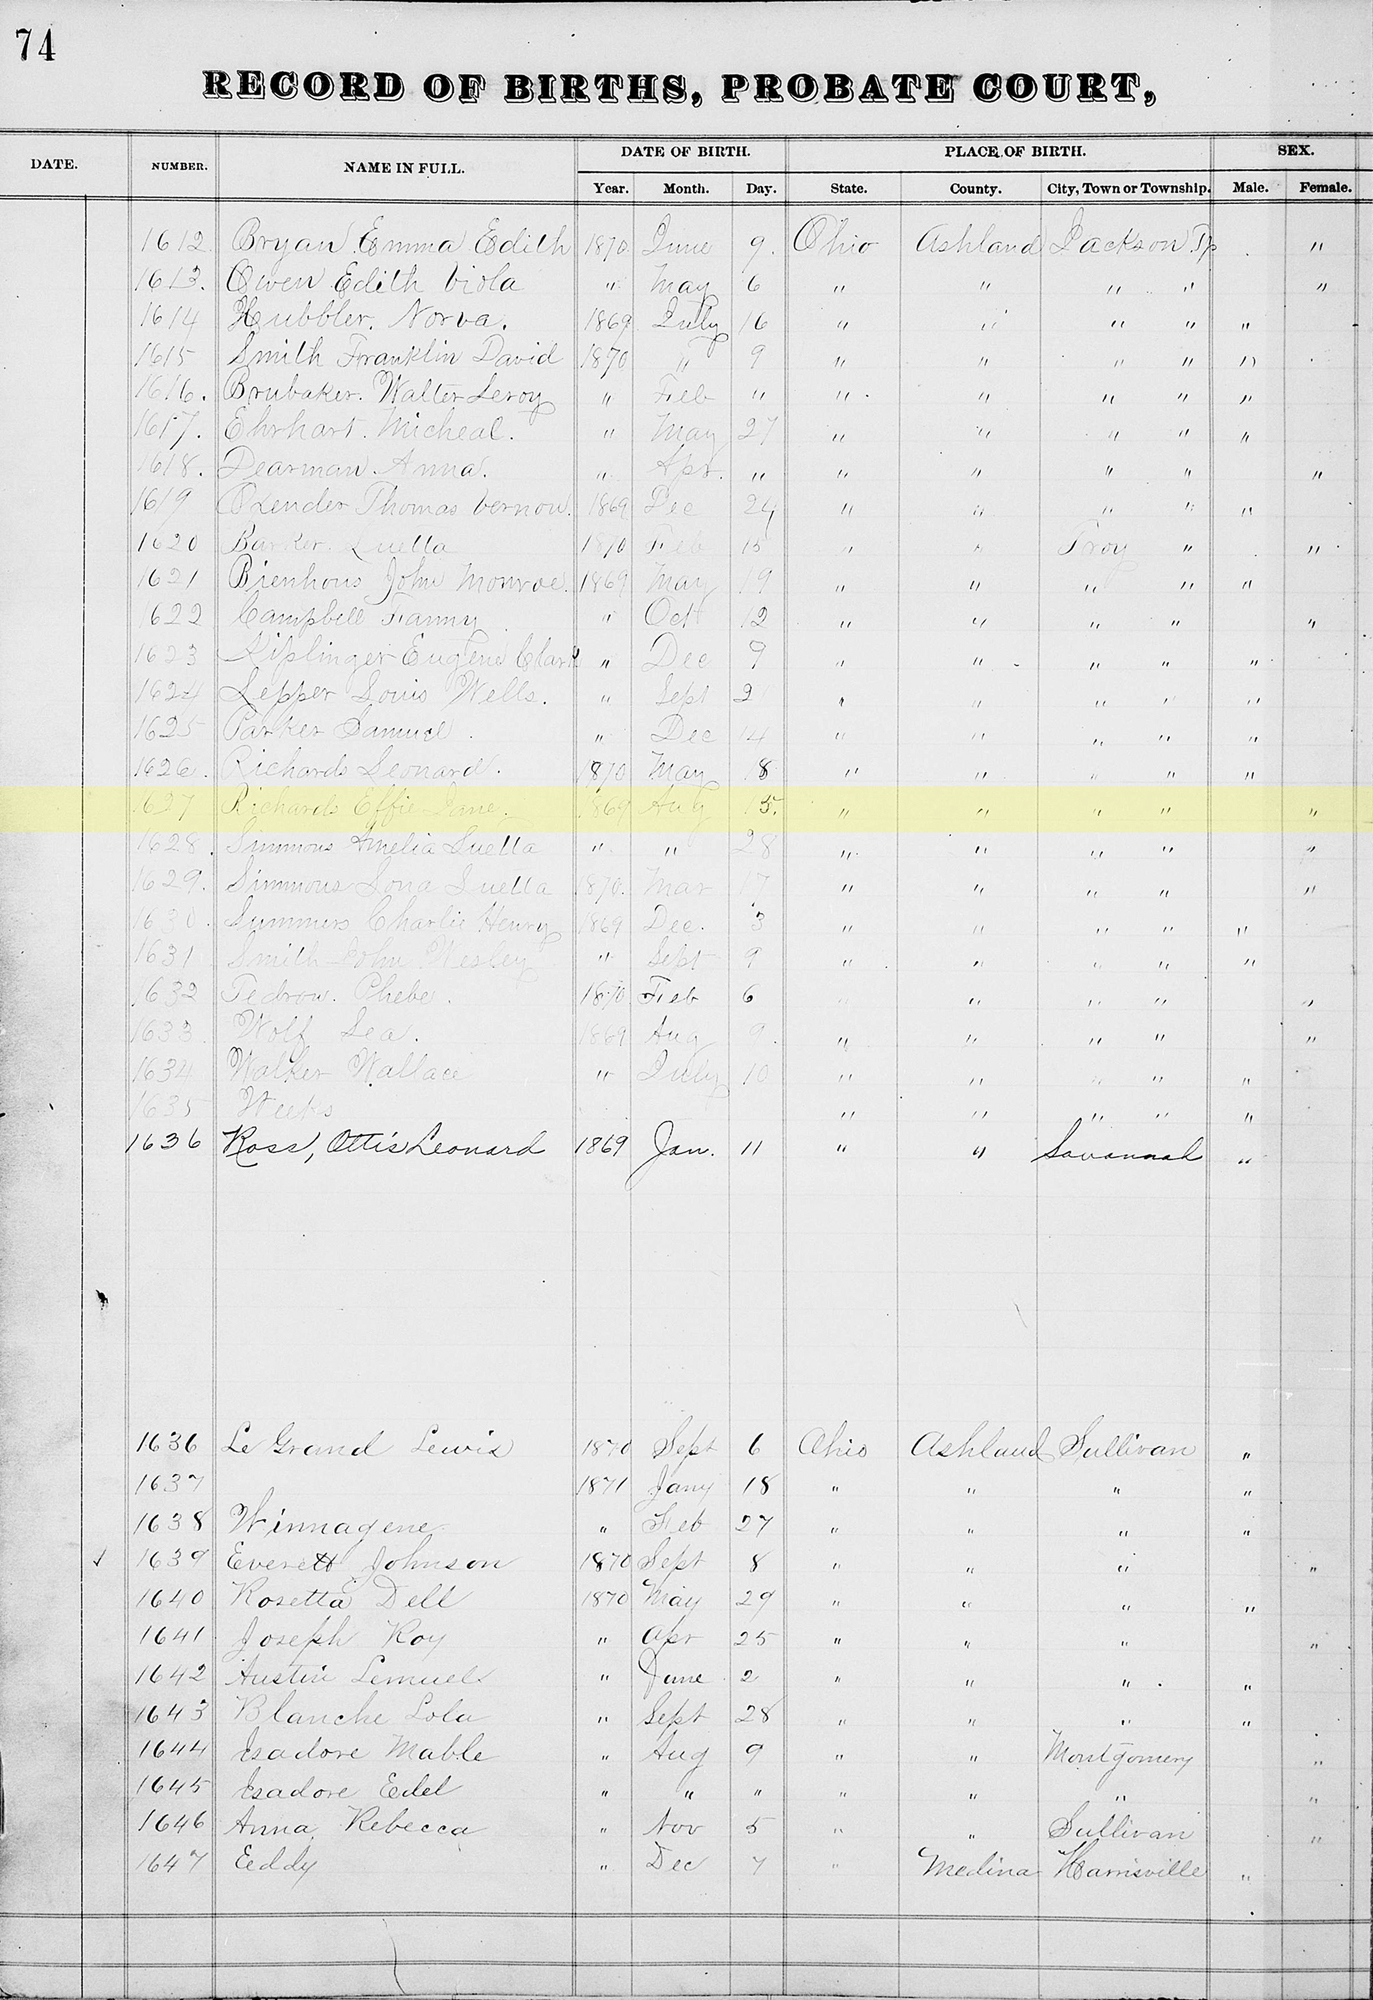 74
RECORD OF BIRTHS, PROBATE COURT,
DATE. NUMBER. NAME IN FULL. DATE OF BIRTH. PLACE OF BIRTH. SEX.
Year. Month. Day. State. County. City, Town or Township. Male. Female.
1612 Bryan Emma Edith 1870 June 9. Ohio Ashland Jackson Tp "
1613. Owen Edith Viola " May 6 " " " " "
1614 Hubbler. Norva. 1869 July 16 " " " " "
1615 Smith Franklin David 1870 " 9 " " " " "
1616. Brubaker. Walter Leroy " Feb " " " " " "
1617. Ehrhart. Micheal. " May 27 " " " " "
1618. Dearman Anna. " Apr. " " " " " "
1619 Oxender Thomas Vernon. 1869 Dec 24 " " " " "
1620 Barker. Luella 1870 Feb 15 " " Troy " "
1621 Bienhous John Monroe. 1869 May 19 " " " " "
1622 Campbell Fanny " Oct 12 " " " " "
1623 Kiplinger Eugene Clark " Dec 9 " " " " "
1624 Lepper Louis Wells. " Sept 2 " " " " "
1625 Parker Samuel. " Dec 14 " " " " "
1626. Richards Leonard. 1870 May 18 " " " " "
1627 Richards Effie Jane. 1869 Aug 15. " " " " "
1628. Simmons Amelia Luella " " 28 " " " " "
1629. Simmons Lona Luella 1870. Mar 17 " " " " "
1630. Summers Charlie Henry 1869 Dec. 3 " " " " "
1631 Smith John Wesley " Sept 9 " " " " "
1632 Tedrow. Phebe. 1870 Feb 6 " " " " "
1633 Wolf Lea. 1869 Aug 9. " " " " "
1634 Walker Wallace " July 10 " " " " "
1635 Weeks " " " " "
1636 Ross, Ottis Leonard 1869 Jan. 11 " " Savannah "
1636 Le Grand Lewis 1870 Sept 6 Ohio Ashland Sullivan "
1637 1871 Jany 18 " " " "
1638 Winnagene " Feb 27 " " " "
1639 Everett Johnson 1870 Sept 8 " " " "
1640 Rosetta Dell 1870 May 29 " " " "
1641 Joseph Roy " Apr 25 " " " "
1642 Austin Lemuel " June 2 " " " "
1643 Blanche Lola " Sept 28 " " " "
1644 Isadore Mable " Aug 9 " " Montgomery "
1645 Isadore Edel " " " " " " "
1646 Anna Rebecca " Nov 5 " " Sullivan "
1647 Eddy " Dec 7 " Medina Harrisville "